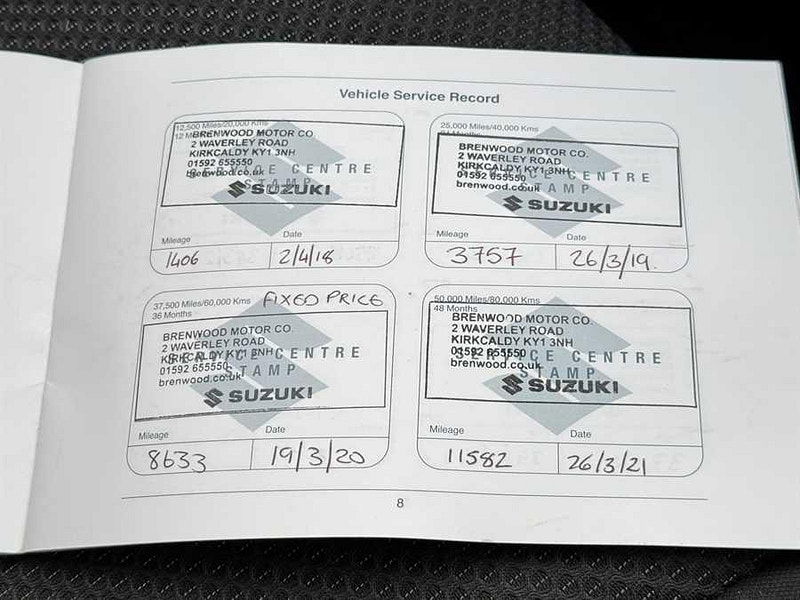 Vehicle Service Record
12,500 Miles/20,000 Kms
12 M
BRENWOOD MOTOR CO.
2 WAVERLEY ROAD
KIRKCALDY KY1 3NH
01592 655550
brenwood.co.uk
SERVICE CENTRE
STAMP
SUZUKI
Mileage
Date
1406
2/4/18
25,000 Miles/40,000 Kms
BRENWOOD MOTOR CO.
2 WAVERLEY ROAD
KIRKCALDY KY1 3NH
01592 655550
brenwood.co.uk
SERVICE CENTRE
STAMP
SUZUKI
Mileage
Date
3757
26/3/19.
37,500 Miles/60,000 Kms FIXED PRICE
36 Months
BRENWOOD MOTOR CO.
2 WAVERLEY ROAD
KIRKCALDY KY1 3NH
01592 655550
brenwood.co.uk
SERVICE CENTRE
STAMP
SUZUKI
Mileage
Date
8633
19/3/20
50,000 Miles/80,000 Kms
48 Months
BRENWOOD MOTOR CO.
2 WAVERLEY ROAD
KIRKCALDY KY1 3NH
01592 655550
brenwood.co.uk
SERVICE CENTRE
STAMP
SUZUKI
Mileage
Date
11582
26/3/21
8